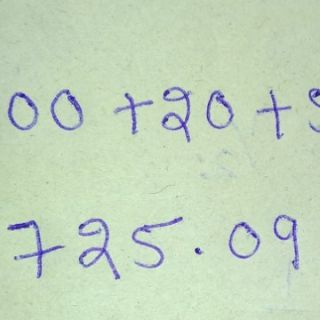 00 + 20 +
725.09